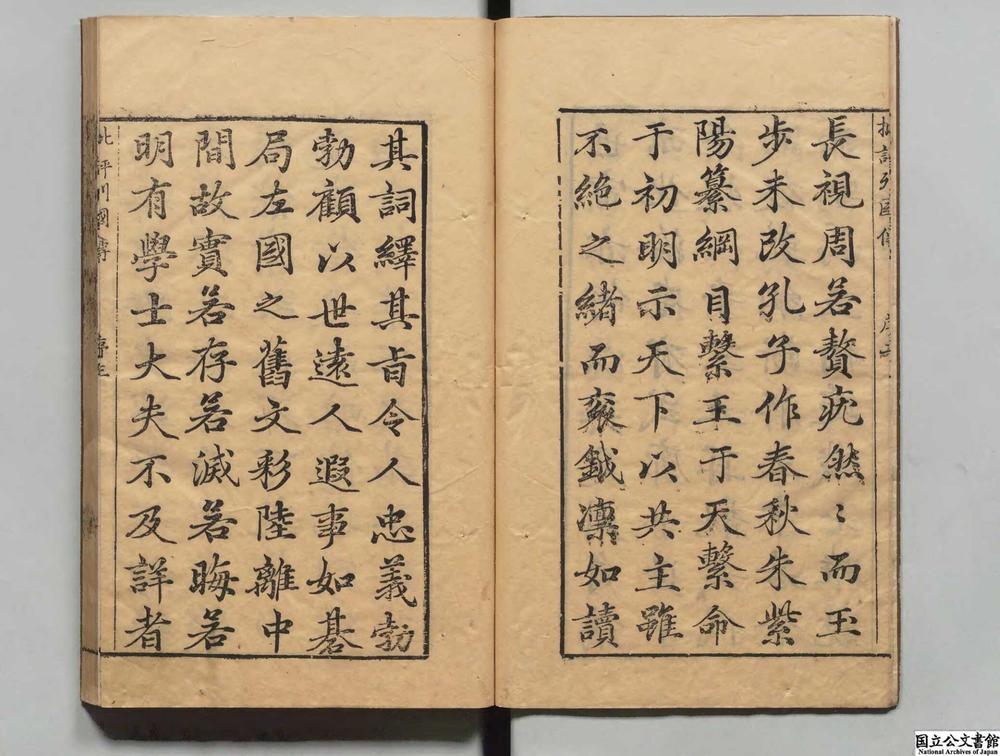 批評列國傳
序
長視周若贅疣然〻而玉
步未改孔子作春秋朱紫
陽纂綱目繫王于天繫命
于初明示天下以共主雖
不絶之緒而袞鉞凛如讀
其詞繹其旨令人忠義勃
勃顧以世遠人遐事如碁
局左國之舊文彩陸離中
間故實若存若滅若晦若
明有學士大夫不及詳者
批評列國傳
序
国立公文書館
National Archives of Japan